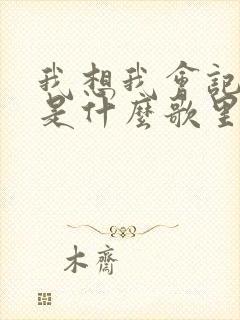 我想我会記
是什麼歌里
木齋